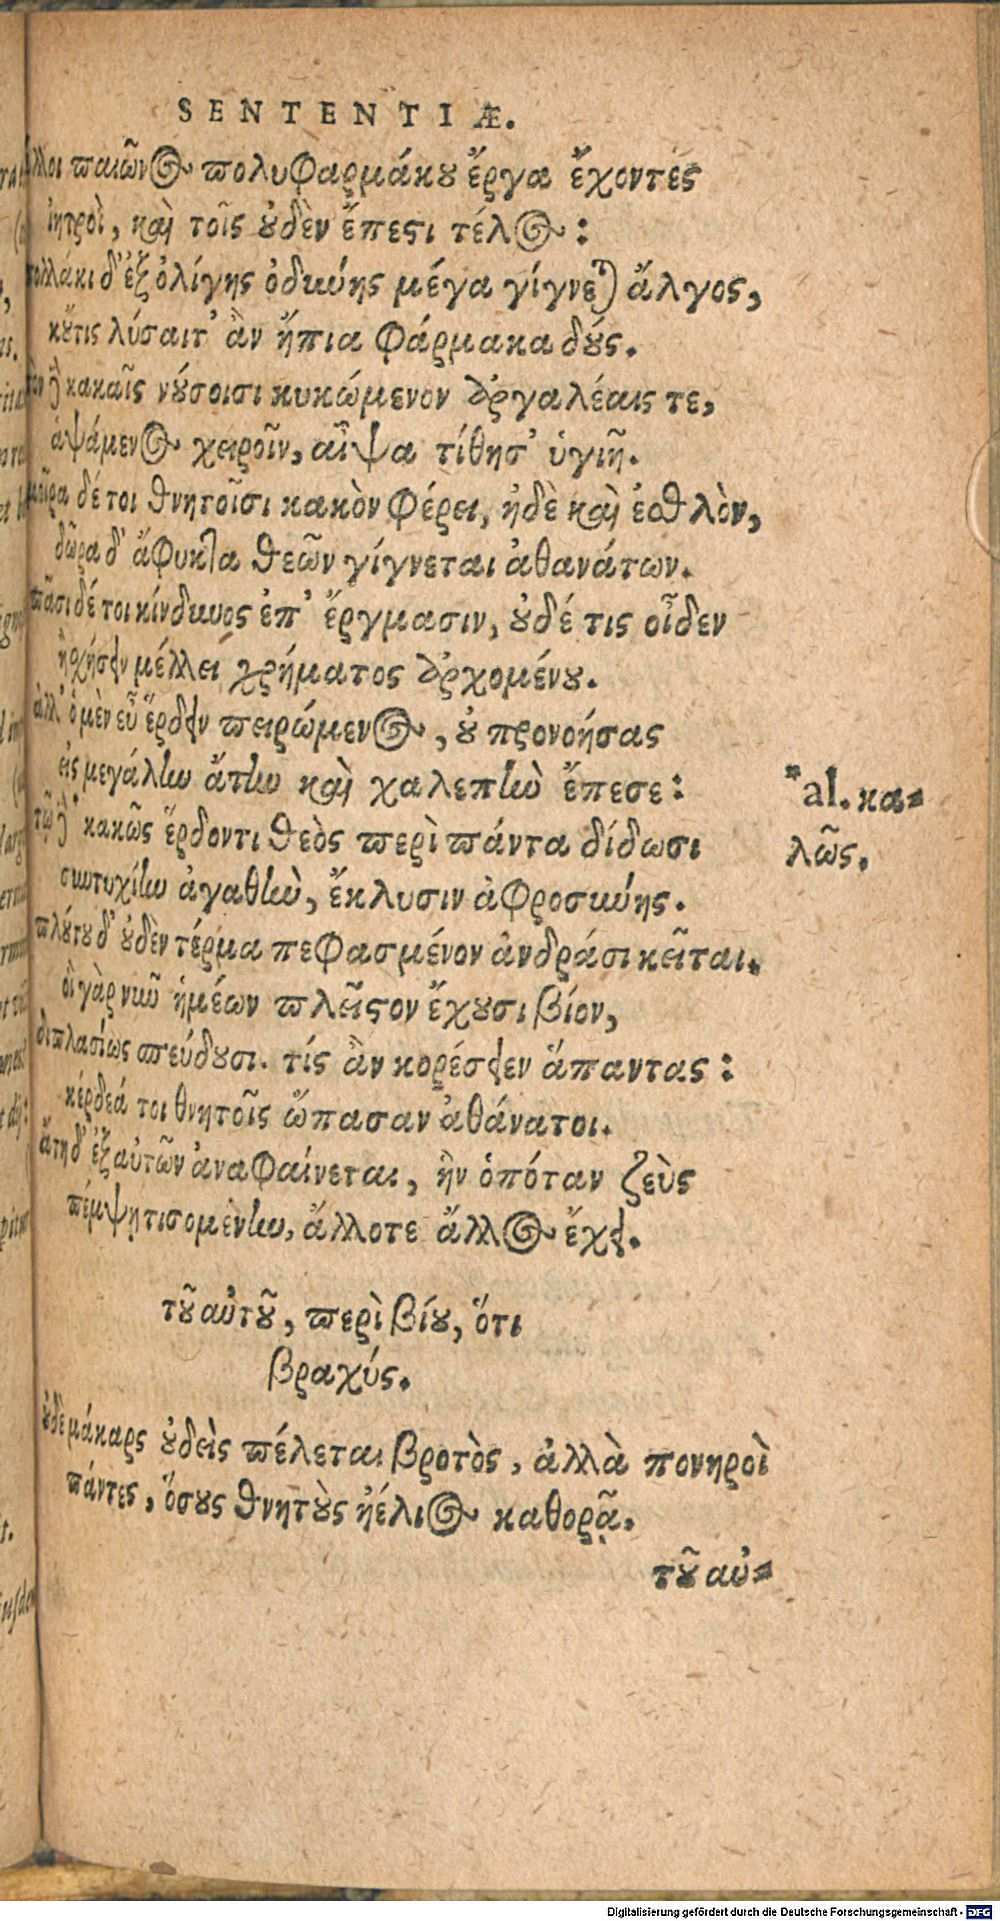 SENTENTIÆ.
ἄλλοι παιῶνος πολυφαρμάκου ἔργα ἔχοντες
ἰητροὶ, καὶ τοῖς οὐδὲν ἔπεστι τέλος:
πολλάκι δ' ἐξ ὀλίγης ὀδύνης μέγα γίγνεται ἄλγος,
κοὔτις λύσαιτ' ἂν ἤπια φάρμακα δούς.
τὸν δὲ κακαῖς νούσοισι κυκώμενον ἀργαλέαις τε,
ἁψάμενος χειροῖν, αἶψα τίθησ' ὑγιῆ.
μοῖρα δέ τοι θνητοῖσι κακὸν φέρει, ἠδὲ καὶ ἐσθλὸν,
δῶρα δ' ἄφυκτα θεῶν γίγνεται ἀθανάτων.
πᾶσι δέ τοι κίνδυνος ἐπ' ἔργμασιν, οὐδέ τις οἶδεν
ᾗ σχήσειν μέλλει χρήματος ἀρχομένου.
ἀλλ' ὁ μὲν εὖ ἔρδειν πειρώμενος, οὐ προνοήσας
εἰς μεγάλην ἄτην καὶ χαλεπὴν ἔπεσε:
τῷ δὲ * κακῶς ἔρδοντι θεὸς περὶ πάντα δίδωσι
συντυχίην ἀγαθὴν, ἔκλυσιν ἀφροσύνης.
πλούτου δ' οὐδὲν τέρμα πεφασμένον ἀνδράσι κεῖται.
οἳ γὰρ νῦν ἡμέων πλεῖστον ἔχουσι βίον,
διπλασίως σπεύδουσι. τίς ἂν κορέσειεν ἅπαντας:
κέρδεά τοι θνητοῖς ὤπασαν ἀθάνατοι.
ἄτη δ' ἐξ αὐτῶν ἀναφαίνεται, ἣν ὁπόταν ζεὺς
πέμψῃ τισομένην, ἄλλοτε ἄλλος ἔχει.
τοῦ αὐτοῦ, περὶ βίου, ὅτι
βραχύς.
οὐδὲ μάκαρς οὐδεὶς πέλεται βροτὸς, ἀλλὰ πονηροὶ
πάντες, ὅσους θνητοὺς ἠέλιος καθορᾷ.
τοῦ αὐ-
*al. κα-
λῶς.
Digitalisierung gefördert durch die Deutsche Forschungsgemeinschaft - DFG